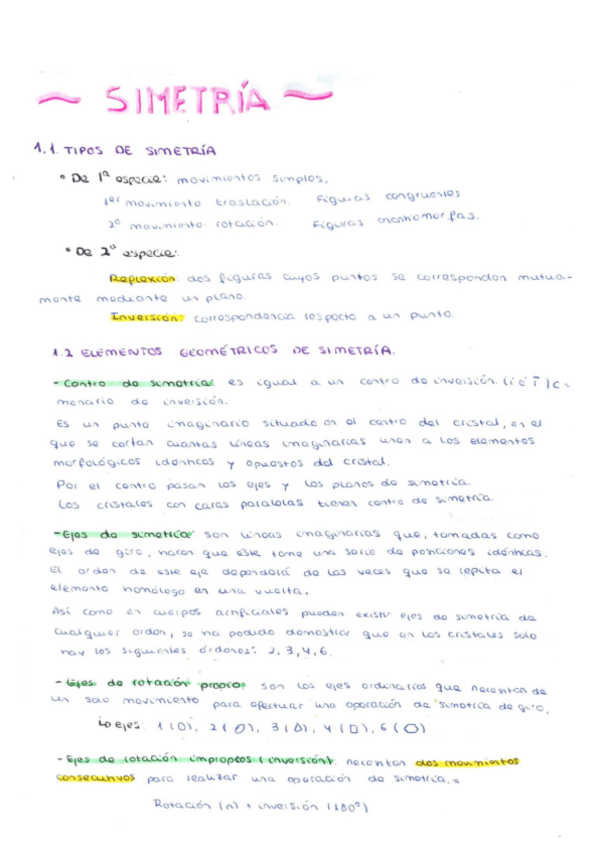 ~ SIMETRÍA ~
1.1. TIPOS DE SIMETRÍA
• De 1ª especie: movimientos simples.
1er movimiento traslación. Figuras congruentes
2º movimiento: rotación. Figuras enantiomorfas.
• De 2ª especie:
Reflexión: dos figuras cuyos puntos se corresponden mutua-
mente mediante un plano.
Inversión: correspondencia respecto a un punto.
1.2 ELEMENTOS GEOMÉTRICOS DE SIMETRÍA.
- Centro de simetría: es igual a un centro de inversión. (i ó 1̅) c =
monario de inversión.
Es un punto imaginario situado en el centro del cristal, en el
que se cortan cuantas líneas imaginarias unen a los elementos
morfológicos idénticos y opuestos del cristal.
Por el centro pasan los ejes y los planos de simetría.
Los cristales con caras paralelas tienen centro de simetría.
- Ejes de simetría: son líneas imaginarias que, tomadas como
ejes de giro, hacen que este tome una serie de posiciones idénticas.
El orden de este eje dependerá de las veces que se repita el
elemento homólogo en una vuelta.
Así como en cuerpos artificiales pueden existir ejes de simetría de
cualquier orden, se ha podido demostrar que en los cristales solo
hay los siguientes órdenes: 2, 3, 4, 6.
- Ejes de rotación propios: son los ejes ordinarios que necesitan de
un solo movimiento para efectuar una operación de simetría de giro.
↳ ejes: 1 (O), 2 (0), 3 (△), 4 (□), 6 (⬡)
- Ejes de rotación impropios (inversión): necesitan dos movimientos
consecutivos para realizar una operación de simetría. =
Rotación (n) + inversión (180º)